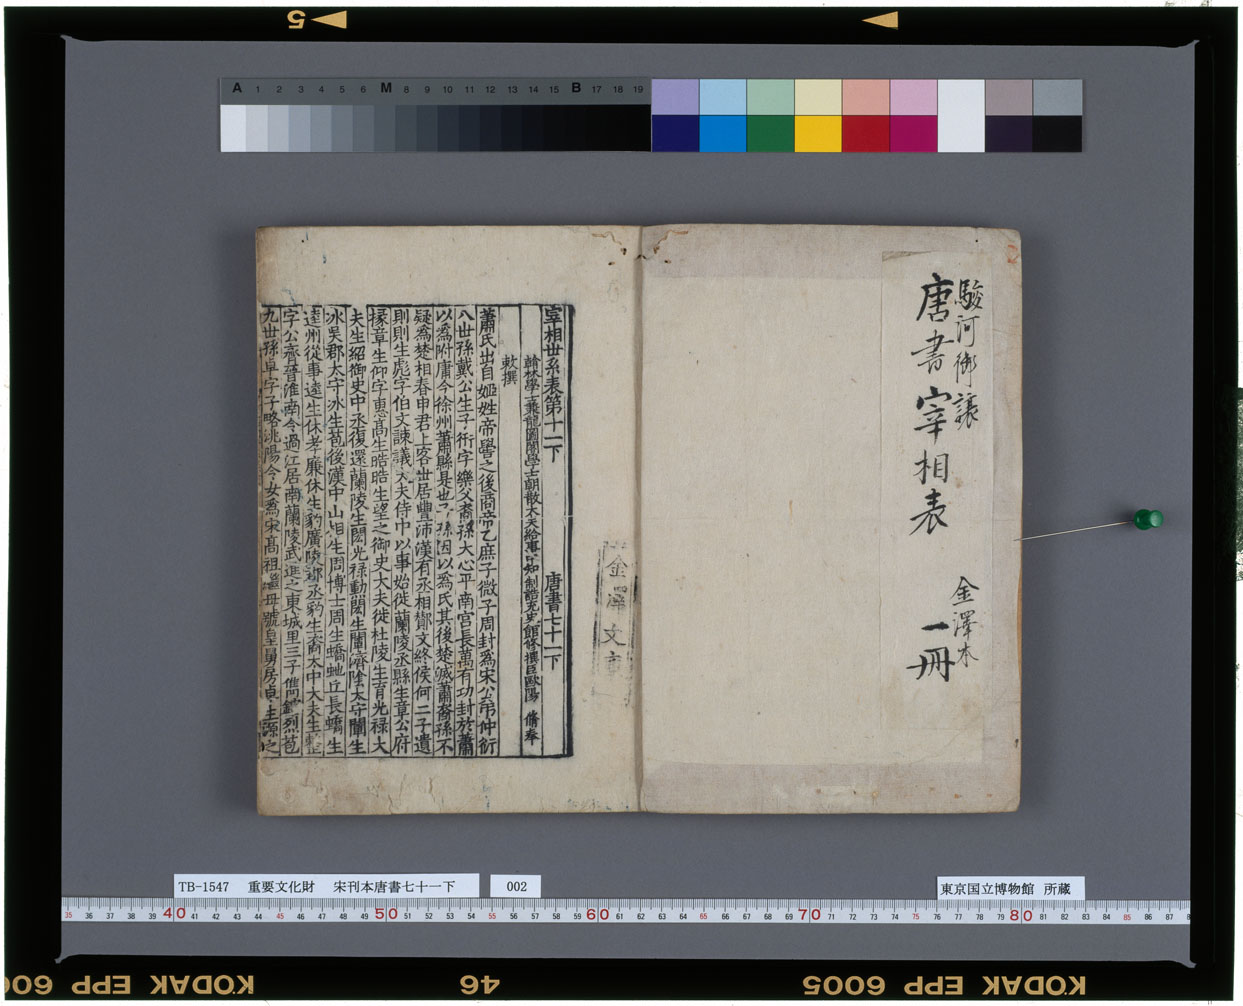 5
A 1 2 3 4 5 6 M 8 9 10 11 12 13 14 15 B 17 18 19
駿河御譲
唐書宰相表 一冊
金澤本
金澤文庫
宰相世系表第十一下 唐書七十一下
翰林學士兼龍圖閣學士朝散大夫給事中知制誥充史館修撰臣歐陽 脩奉
敕撰
蕭氏出自姬姓帝嚳之後商帝乙庶子微子周封為宋公弟仲衍
八世孫戴公生子衎字樂父裔孫大心平南宮長萬有功封於蕭
以為附庸今徐州蕭縣是也子孫因以為氏其後楚滅蕭裔孫不
疑為楚相春申君上客世居豐沛漢有丞相酇文終侯何二子遺
則則生彪字伯文諫議大夫侍中以事始徙蘭陵丞縣生章公府
掾章生仰字惠髙生皓皓生望之御史大夫徙杜陵生育光禄大
夫生紹御史中丞復還蘭陵生閎光禄勳閎生闡濟陰太守闡生
冰吳郡太守冰生苞後漢中山相生周博士周生蟜虵丘長蟜生
逵州從事逵生休孝廉休生豹廣陵郡丞豹生裔太中大夫生整
字公齊晉淮南令過江居南蘭陵武進之東城里三子儁鎋烈苞
九世孫卓字子略洮陽令女為宋髙祖繼母號皇舅房卓生源之
TB-1547 重要文化財 宋刊本唐書七十一下
002
東京国立博物館 所蔵
35 36 37 38 39 40 41 42 43 44 45 46 47 48 49 50 51 52 53 54 55 56 57 58 59 60 61 62 63 64 65 66 67 68 69 70 71 72 73 74 75 76 77 78 79 80 81 82 83 84 85 86 87
KODAK EPP 6005
46
KODAK EPP 600